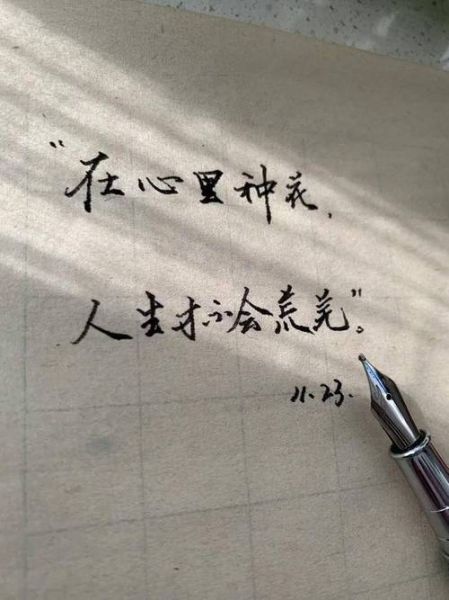 “在心里种花，
人生才不会荒芜”。
11.23.